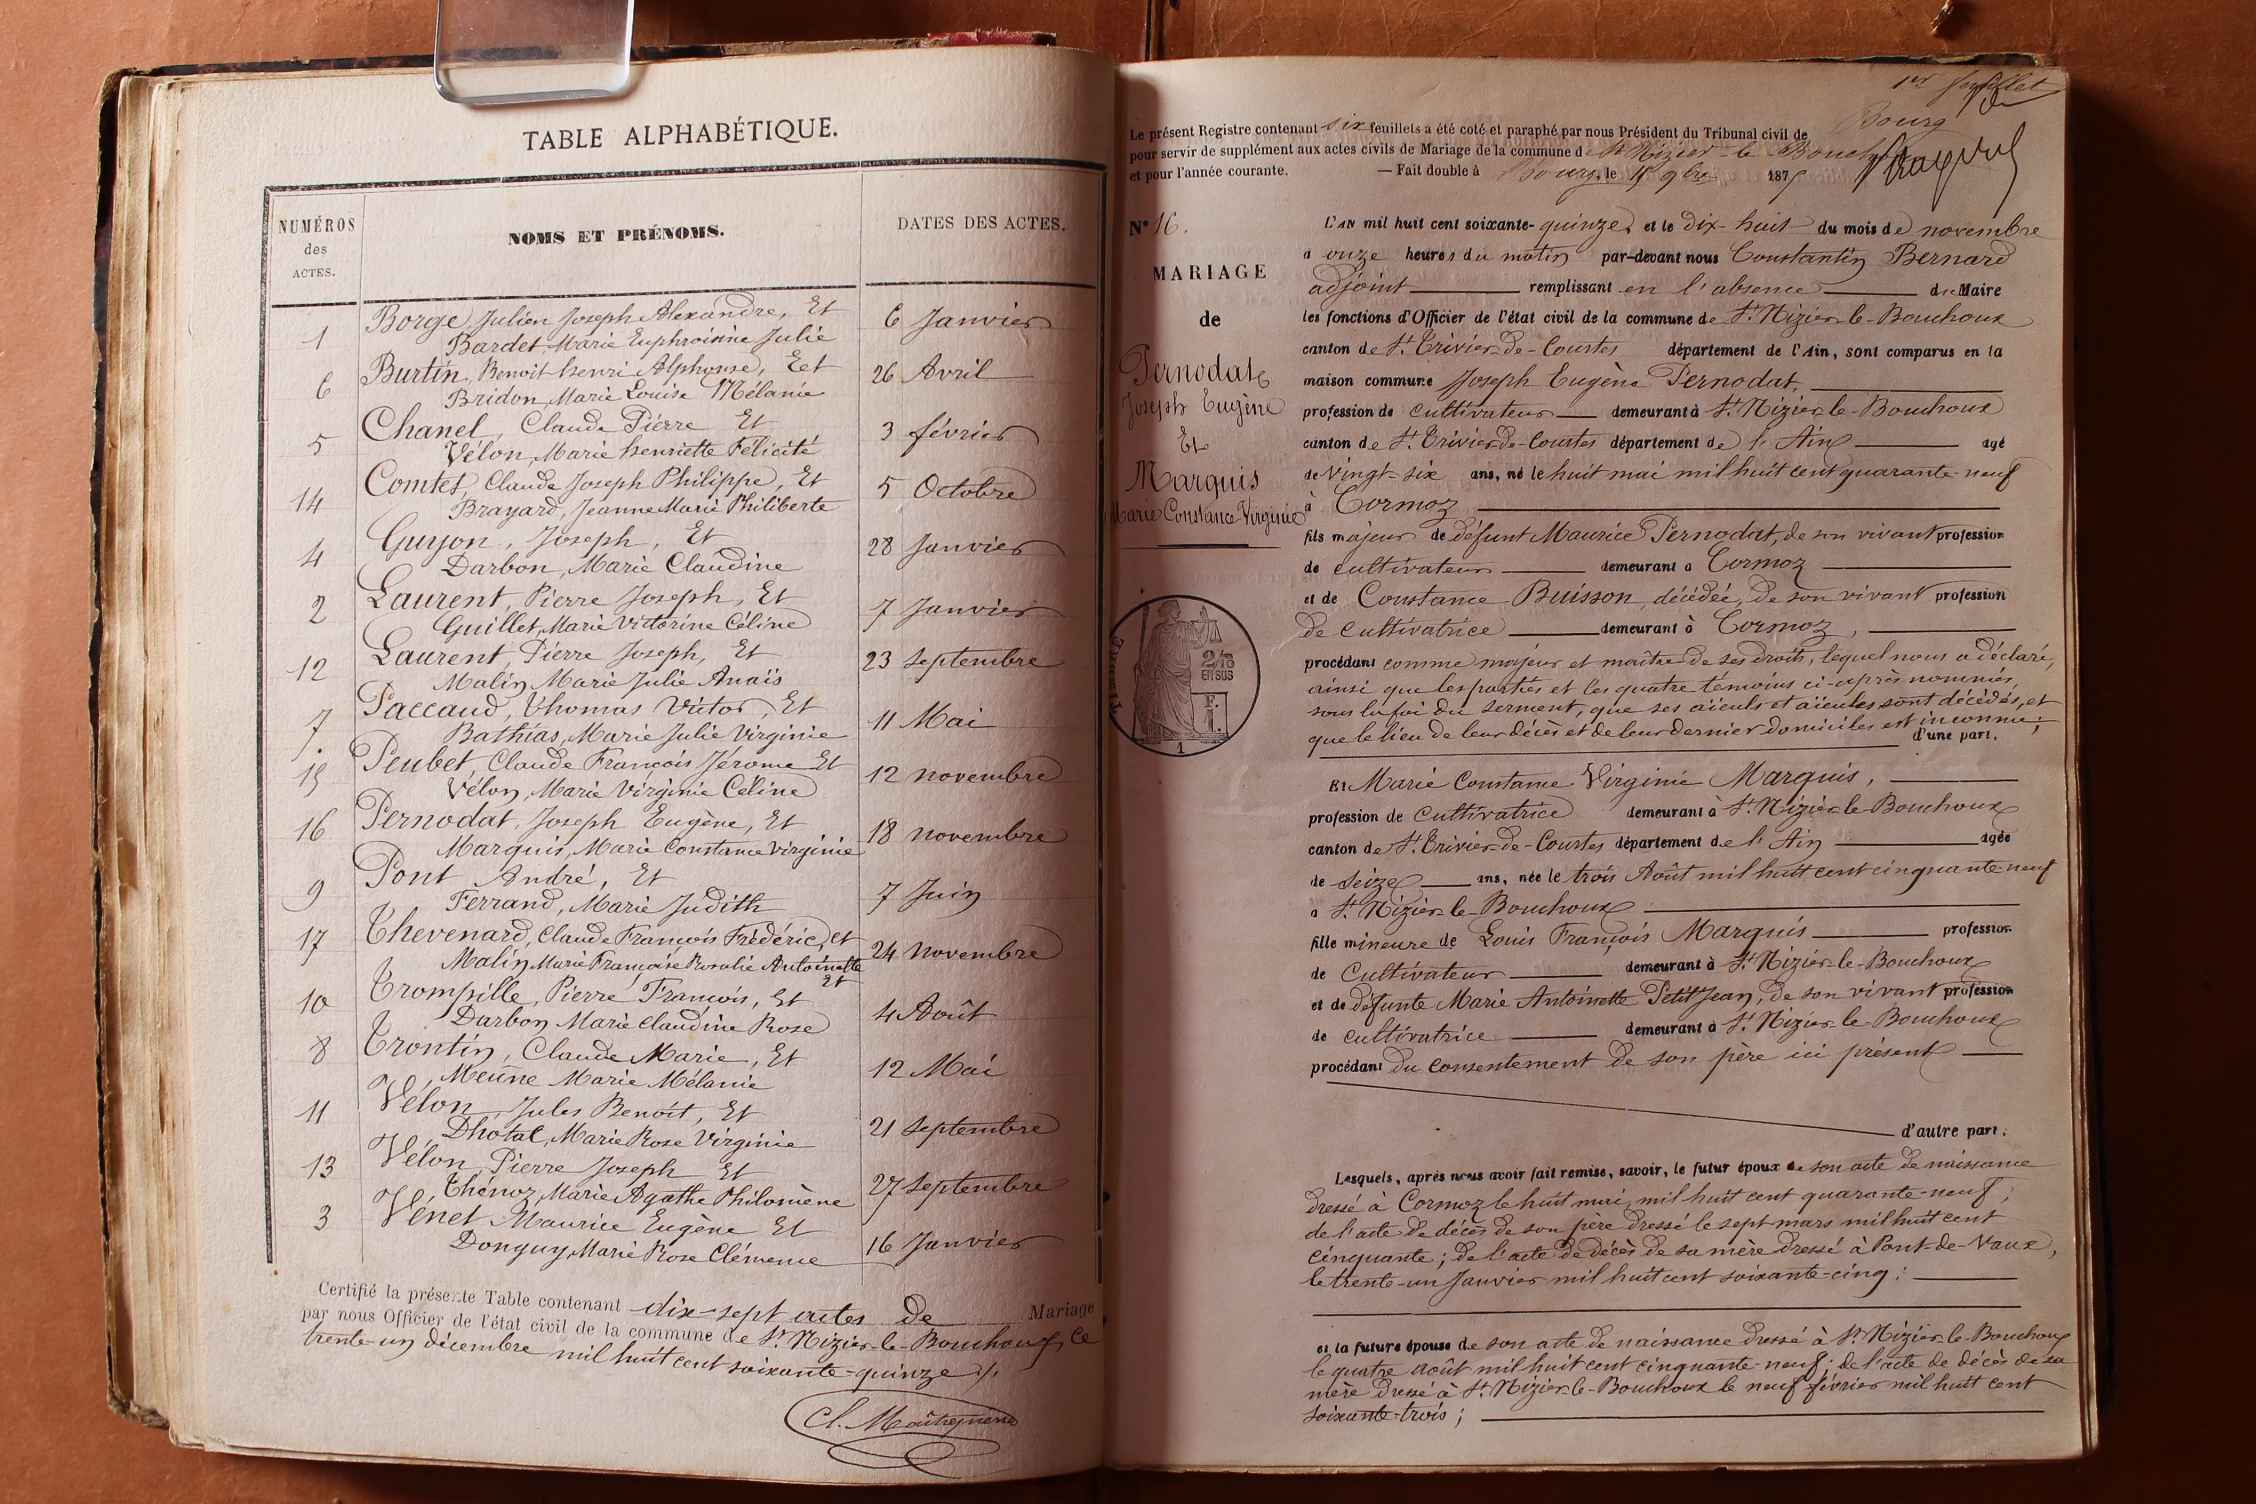 TABLE ALPHABÉTIQUE.
NUMÉROS des ACTES.
NOMS ET PRÉNOMS.
DATES DES ACTES.
1 Borge Julien Joseph Alexandre, Et 6 Janvier
Bardet Marie Euphroisine Julie
6 Burtin Benoit henri Alphonse, Eet 26 Avril
Bridon Marie Louise Mélanie
5 Chanel, Claude Pierre Et 3 février
Vélon, Marie henriette Félicité
14 Comtet, Claude Joseph Philippe, Et 5 Octobre
Brayard, Jeanne Marie Philiberte
4 Guyon, Joseph, Et 28 Janvier
Darbon, Marie Claudine
2 Laurent, Pierre Joseph, Et 7 Janvier
Guillet, Marie Victorine Céline
12 Laurent, Pierre Joseph, Et 23 Septembre
Malin Marie Julie Anaïs
7 Paccaud, Thomas Victor, Et 11 Mai
Bathias, Marie Julie Virginie
15 Peubet, Claude François Jérome Et 12 novembre
Vélon, Marie Virginie Céline
16 Pernodat, Joseph Eugène, Et 18 novembre
Marquis, Marie Constance Virginie
9 Pont André, Et 7 Juin
Ferrand, Marie Judith
17 Thevenard, Claude François Frédéric, et 24 novembre
Malin Marie Françoise Rosalie Antoinette
Et
10 Trompille, Pierre François, Et 4 Août
Darbon Marie Claudine Rose
8 Trontin, Claude Marie, Et 12 Mai
Meune Marie Mélanie
11 Vélon, Jules Benoît, Et 21 Septembre
Dhôtal, Marie Rose Virginie
13 Vélon, Pierre Joseph Et 27 Septembre
Thénoz, Marie Agathe Philomène
3 Vénet Maurice Eugène Et 16 Janvier
Donguy, Marie Rose Clémence
Certifié la présente Table contenant dix-sept actes de Mariage
par nous Officier de l'état civil de la commune de St Nizier-le-Bouchoux, ce
trente-un décembre mil huit cent soixante-quinze ./.
1er feuillet
Le présent Registre contenant six feuillets a été coté et paraphé par nous Président du Tribunal civil de Bourg
pour servir de supplément aux actes civils de Mariage de la commune d St Nizier-le-Bouchoux
et pour l'année courante. — Fait double à Bourg, le 15 9bre 1875
N° 16.
MARIAGE
de
Pernodat
Joseph Eugène
Et
Marquis
Marie Constance Virginie
2/10
EN SUS
F.
1.
1
L'AN mil huit cent soixante-quinze, et le dix-huit du mois de novembre
à onze heures du matin par-devant nous Constantin Bernard
adjoint remplissant en l'absence du Maire
les fonctions d'Officier de l'état civil de la commune de St Nizier-le-Bouchoux
canton de St Trivier-de-Courtes département de l'Ain, sont comparus en la
maison commune Joseph Eugène Pernodat,
profession de cultivateur demeurant à St Nizier-le-Bouchoux
canton de St Trivier-de-Courtes département de l'Ain agé
de vingt-six ans, né le huit mai mil huit cent quarante-neuf
à Cormoz
fils majeur de défunt Maurice Pernodat, de son vivant profession
de cultivateur demeurant à Cormoz
et de Constance Buisson, décédée, de son vivant profession
de cultivatrice demeurant à Cormoz,
procédant comme majeur et maître de ses droits, lequel nous a déclaré,
ainsi que les parties et les quatre témoins ci-après nommés,
sous la foi du serment, que ses aïeuls et aïeules sont décédés, et
que le lieu de leur décès et de leur dernier domiciles est inconnu ;
d'une part.
Et Marie Constance Virginie Marquis,
profession de cultivatrice demeurant à St Nizier-le-Bouchoux
canton de St Trivier-de-Courtes département de l'Ain agée
de seize ans, née le trois Août mil huit cent cinquante-neuf
à St Nizier-le-Bouchoux
fille mineure de Louis François Marquis profession
de cultivateur demeurant à St Nizier-le-Bouchoux
et de défunte Marie Antoinette Petit Jean, de son vivant profession
de cultivatrice demeurant à St Nizier-le-Bouchoux
procédant du consentement de son père ici présent
d'autre part.
Lesquels, après nous avoir fait remise, savoir, le futur époux de son acte de naissance
dressé à Cormoz le huit mai mil huit cent quarante-neuf ;
de l'acte de décès de son père dressé le sept mars mil huit cent
cinquante ; de l'acte de décès de sa mère dressé à Pont-de-Vaux,
le trente-un Janvier mil huit cent soixante-cinq ;
et la future épouse de son acte de naissance dressé à St Nizier-le-Bouchoux
le quatre août mil huit cent cinquante-neuf ; de l'acte de décès de sa
mère dressé à St Nizier-le-Bouchoux le neuf février mil huit cent
soixante-trois ;